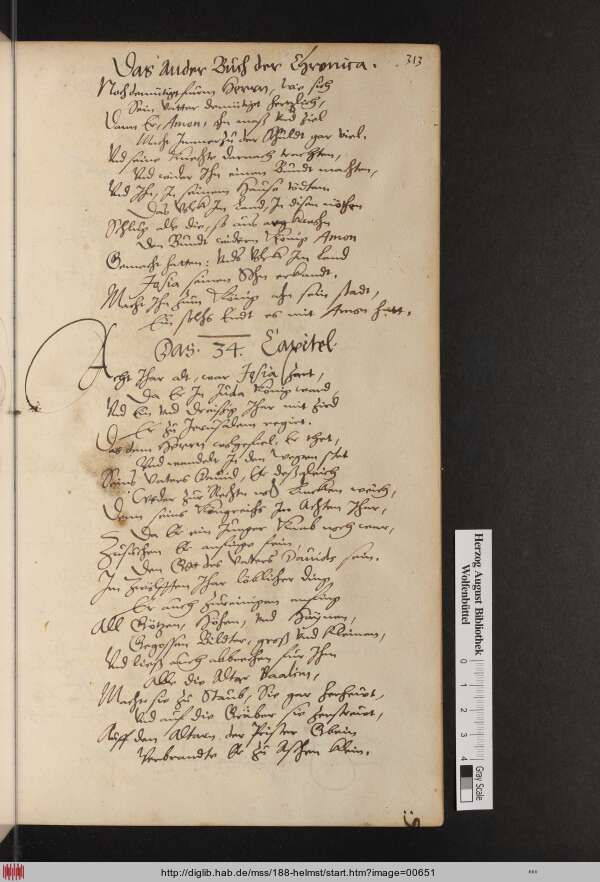 Das Ander Buch der Chronica.
313
Noch demütigt fürm Herrn, wie sich
Sein Vatter demütigt hertzlich,
Dann Er, Amon, ohn maß vnd ziel
Macht Immerzu der Schuldt gar viel.
Vnd seine Knechte darnach trachten,
Vnd wider Ihn einen Bundt machten,
Vnd Ihn, In seinem Hause tödten
Das Volck Im Land, In disen nöthen
Schlug alle die, so aus
Den Bundt widern König Amon
Gemacht hatten: Vnds Volck Im Land
Josia seinen Sohn erkandt.
Macht Ihn zum König ahn sein stadt,
Ein solchs Endt es mit Amon hatt.
Das. 34. Capitel
Acht Jhar alt, war Josia zart,
Da Er In Juda König ward
Vnd Ein vnd Dreissig Jhar mit
Er zu Jerusalem regirt.
Das dem Herrn wolgefiel, Er thet,
Vnd wandelt In den wegen stet
Seins Vaters Dauid, Er deßgleich
Weder zur Rechten noch Lincken weich,
Denn seins Königreichs Im Achten Jhar,
Da Er ein Junger Knab noch war,
Zusuchen Er anfinge fein
Den Gott des Vatters Dauids sein.
Im Zwölfften Jhar löblicher ding
Er auch Zureinigen anfing
All Götzen, Höhen, vnd Haynen,
Gegossen Bilder, groß vnd kleinen,
Vnd ließ auch abbrechen für Ihm
Alle die Altar Baalim,
Macht sie zu Staub, Sie gar
Vnd auf die Gräber sie zerstrewt,
Auff den Altarn der Prister Gbein
Verbrandte Er zu Aschen klein.
Herzog August Bibliothek
Wolfenbüttel
0 1 2 3 4
Gray Scale
http://diglib.hab.de/mss/188-helmst/start.htm?image=00651